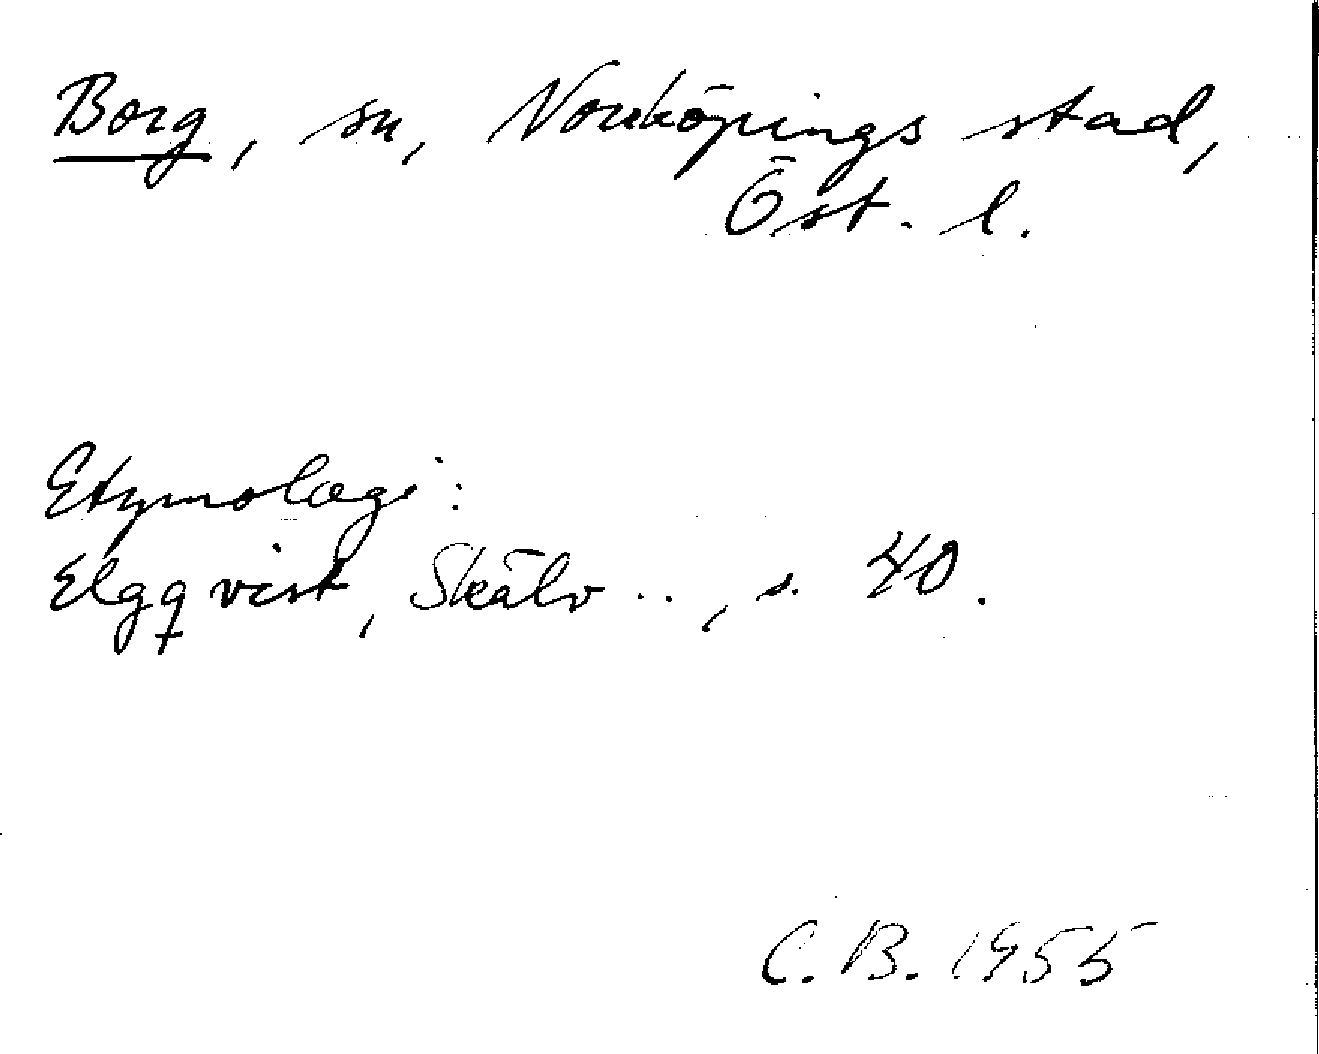 Borg, sn, Norrköpings stad,
Öst. l.
Etymologi:
Elgqvist, Skälv .., s. 40.
C. B. 1955